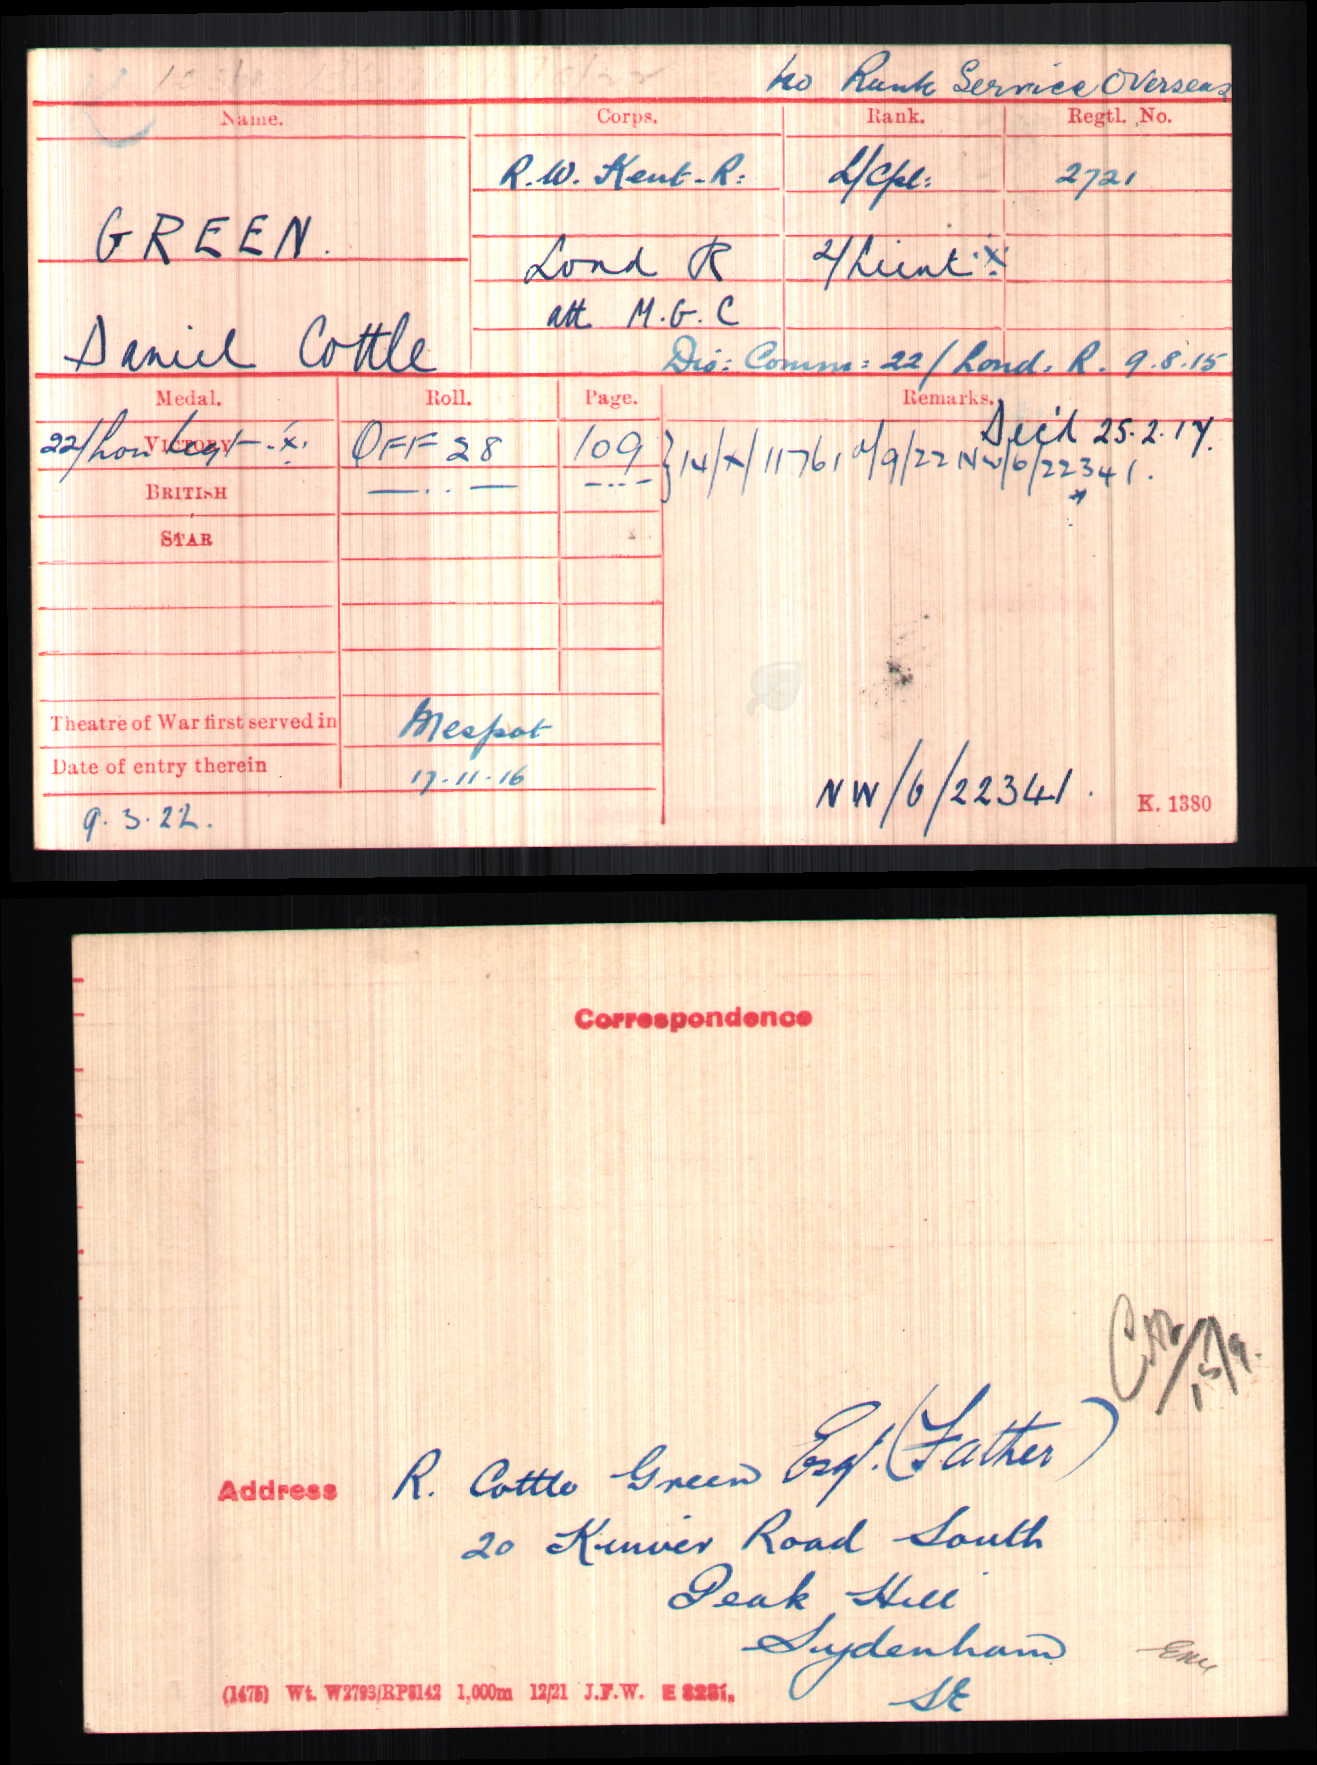 No Rank Service Overseas
Name. Corps. Rank. Regtl. No.
R.W. Kent. R: L/Cpl: 2721
GREEN. Lond R 2/Lieut. X
att M.G.C
Daniel Cottle
Dis: Comm: 22/Lond. R. 9.8.15
Medal. Roll. Page. Remarks.
Dec'd 25.2.17.
22/Lon Regt - X. VICTORY OFF 28 109 } 14/X/11761 9/22 NW/6/22341.
BRITISH — . . — — . . —
STAR
Theatre of War first served in Mespot
Date of entry therein 17.11.16
9.3.22. NW/6/22341. K. 1380
Correspondence
15/9.
Address R. Cottle Green Esq. (Father)
20 Kinver Road South
Peak Hill
Sydenham
SE
(1475) Wt. W2793/RP3142 1,000m 12/21 J.F.W. E 8281.